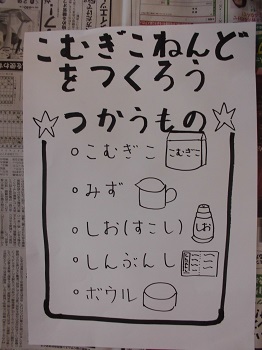 こむぎこねんど
をつくろう
つかうもの
こむぎこ
こむぎこ
みず
しお(すこし)
しお
しんぶんし
ボウル